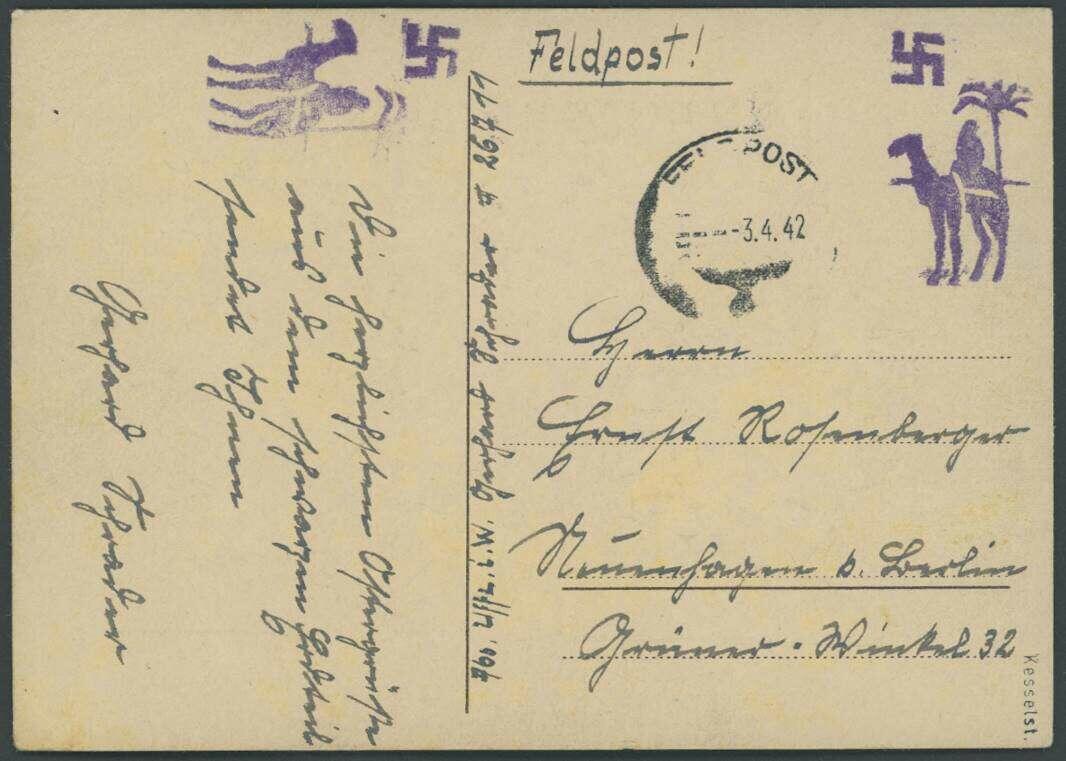 Feldpost!
FELDPOST
-3.4.42
Herrn
Ernst Rosenberger
Neuenhagen b. Berlin
Grüner-Winkel 32
Kesselst.
Abs. Uffz. Gerhard Schrader 26711
Die herzlichsten Ostergrüße
aus dem schwarzen Erdteil
sendet Ihnen
Gerhard Schrader